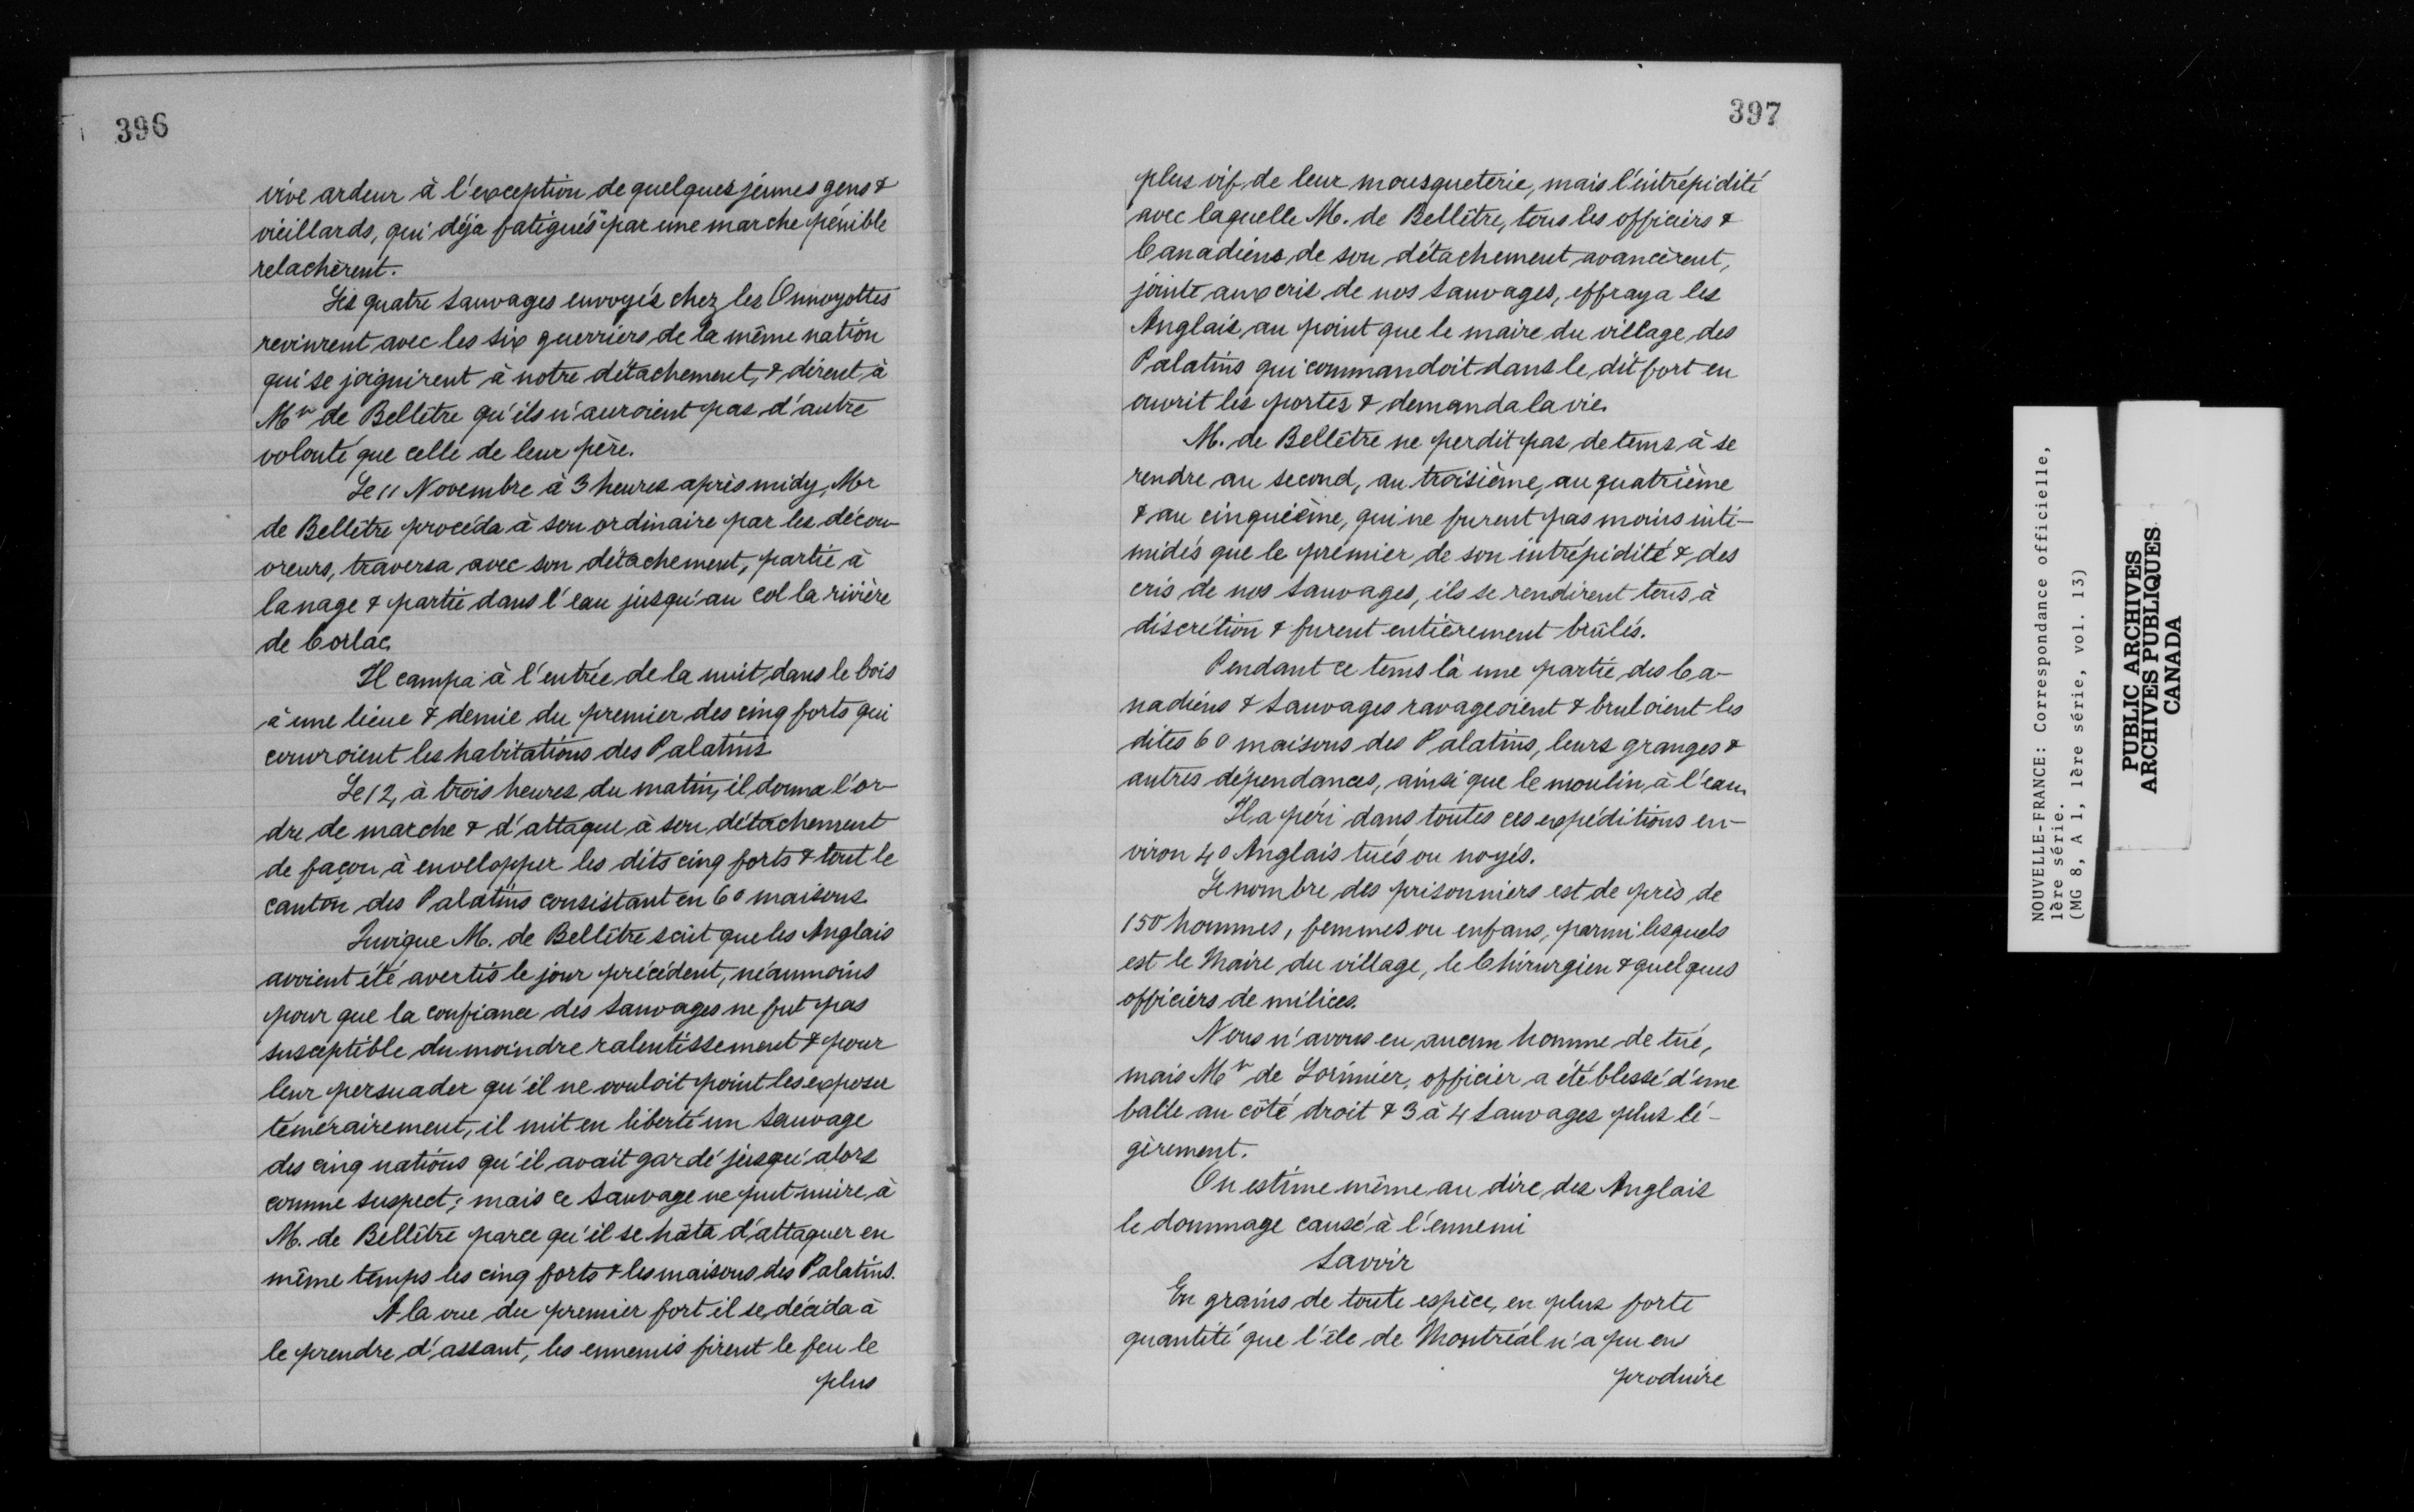 396
vive ardeur à l'exception de quelques jeunes gens &
vieillards, qui déja fatigués par une marche pénible
relachèrent.
Les quatre Sauvages envoyés chez les Onnoyottes
revinrent avec les six guerriers de la même nation
qui se joignirent à notre détachement, & dirent à
Mr de Bellêtre qu'ils n'auroient pas d'autre
volonté que celle de leur père.
Le 11 Novembre à 3 heures après midy, Mr
de Bellêtre procéda à son ordinaire par les décou-
vreurs, traversa avec son détachement, partie à
la nage & partie dans l'eau jusqu'au col la rivière
de Corlac.
Il campa à l'entrée de la nuit dans le bois
à une lieue & demie du premier des cinq forts qui
couvroient les habitations des Palatins.
Le 12, à trois heures du matin, il donna l'or-
dre de marche & d'attaque à son détachement
de façon à envelopper les dits cinq forts & tout le
canton des Palatins consistant en 60 maisons.
Quoique M. de Bellêtre sçut que les Anglais
avoient été avertis le jour précédent, néanmoins
pour que la confiance des Sauvages ne fut pas
susceptible du moindre ralentissement & pour
leur persuader qu'il ne vouloit point les exposer
témérairement, il mit en liberté un Sauvage
des cinq nations qu'il avait gardé jusqu'alors
comme suspect; mais ce Sauvage ne put nuire à
M. de Bellêtre parce qu'il se hâta d'attaquer en
même temps les cinq forts & les maisons des Palatins.
A la vue du premier fort il se décida à
le prendre d'assaut, les ennemis firent le feu le
plus
397
plus vif de leur mousqueterie, mais l'intrépidité
avec laquelle M. de Bellêtre, tous les officiers &
Canadiens de son détachement avancèrent,
jointe aux cris de nos Sauvages, effraya les
Anglais au point que le maire du village des
Palatins qui commandoit dans le dit fort en
ouvrit les portes & demanda la vie.
M. de Bellêtre ne perdit pas de tems à se
rendre au second, au troisième, au quatrième
& au cinquième, qui ne furent pas moins inti-
midés que le premier de son intrépidité & des
cris de nos Sauvages, ils se rendirent tous à
discrétion & furent entièrement brûlés.
Pendant ce tems là une partie des Ca-
nadiens & Sauvages ravageoient & bruloient les
dites 60 maisons des Palatins, leurs granges &
autres dépendances, ainsi que le moulin à l'eau.
Il a péri dans toutes ces expéditions en-
viron 40 Anglais tués ou noyés.
Le nombre des prisonniers est de près de
150 hommes, femmes ou enfans, parmi lesquels
est le Maire du village, le Chirurgien & quelques
officiers de milices.
Nous n'avons eu aucun homme de tué,
mais Mr de Lorimier, officier a été blessé d'une
balle au côté droit & 3 à 4 Sauvages plus lé-
gèrement.
On estime même au dire des Anglais
le dommage causé à l'ennemi
Savoir
En grains de toute espèce, en plus forte
quantité que l'île de Montréal n'a pu en
produire
NOUVELLE-FRANCE: Correspondance officielle,
1ère série.
(MG 8, A 1, 1ère série, vol. 13)
PUBLIC ARCHIVES
ARCHIVES PUBLIQUES
CANADA